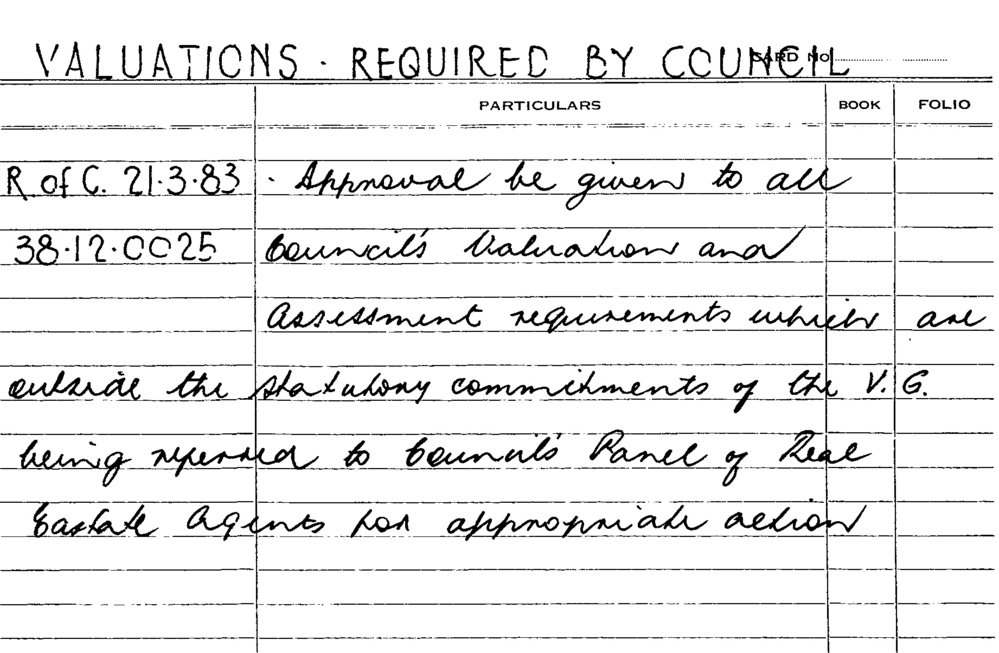 VALUATIONS · REQUIRED BY COUNCIL CARD No.
PARTICULARS BOOK FOLIO
R of C. 21·3·83 · Approval be given to all
38·12·0025 Council's Valuation and
Assessment requirements which are
outside the statutory commitments of the V. G.
being referred to Council's Panel of Real
Eastate Agents for appropriate action